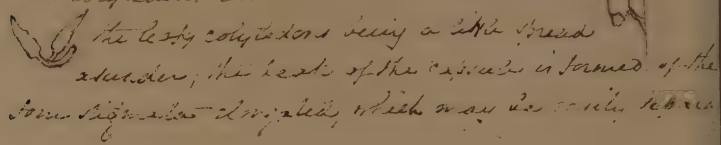 the leafy cotyledons being a little spread
asunder; the beak of the capsule is formed of the
four stigmata elongated, which may be easily